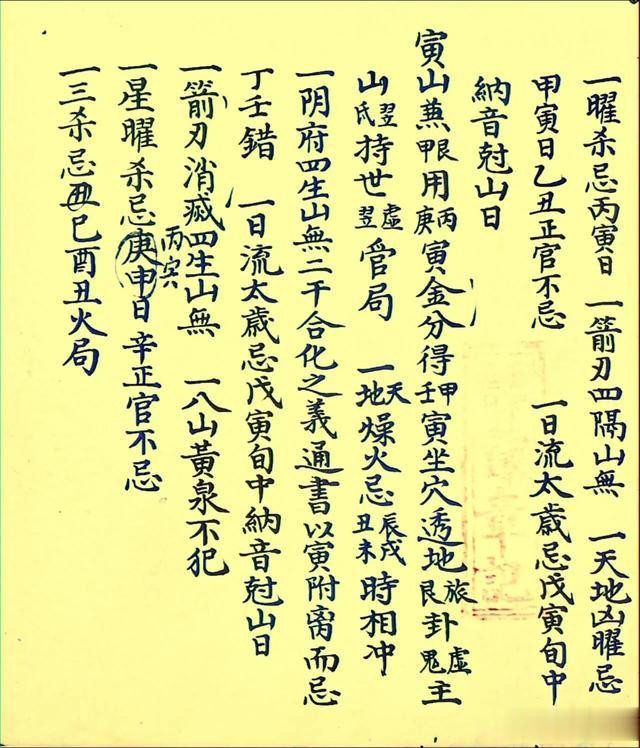 一曜杀忌丙寅日　一箭刃四隅山無　一天地凶曜忌
甲寅日乙丑正官不忌　一日流太歲忌戊寅旬中
納音尅山日
寅山兼甲艮用丙庚寅金分得甲壬寅坐穴透地旅艮卦虛鬼主
山翌氐持世虛翌管局　一天地燥火忌辰戌丑未時相冲
一阴府四生山無二干合化之義通書以寅附离而忌
丁壬錯　一日流太歲忌戊寅旬中納音尅山日
一箭刃消滅四生山無　一八山黃泉不犯
一星曜杀忌庚申丙寅日辛正官不忌
一三杀忌丑巳酉丑火局